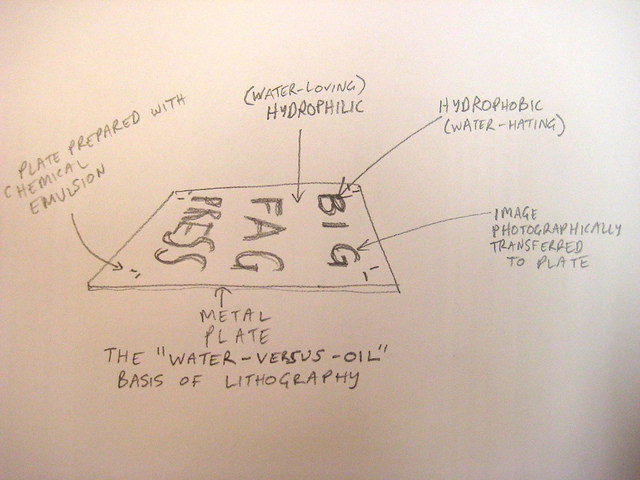 (WATER-LOVING)
HYDROPHILIC
HYDROPHOBIC
(WATER-HATING)
PLATE PREPARED WITH
CHEMICAL
EMULSION
BIG
FAG
PRESS
IMAGE
PHOTOGRAPHICALLY
TRANSFERRED
TO PLATE
METAL
PLATE
THE "WATER-VERSUS-OIL"
BASIS OF LITHOGRAPHY